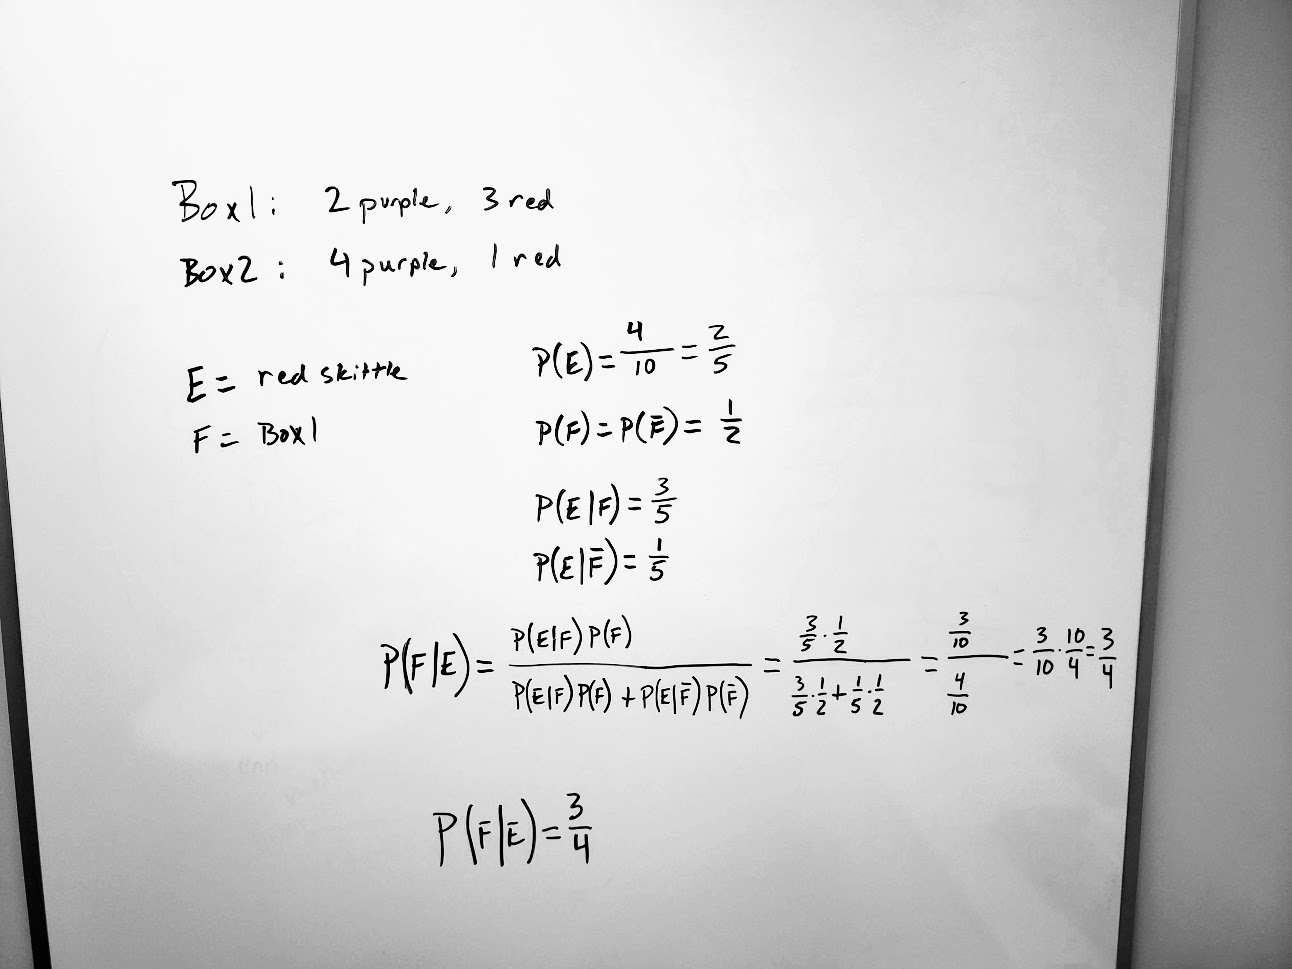 Box1: 2 purple, 3 red
Box2: 4 purple, 1 red
E = red skittle
F = Box1
P(E) = 4/10 = 2/5
P(F) = P(F̄) = 1/2
P(E|F) = 3/5
P(E|F̄) = 1/5
P(F|E) = P(E|F)P(F) / P(E|F)P(F) + P(E|F̄)P(F̄) = 3/5 · 1/2 / 3/5 · 1/2 + 1/5 · 1/2 = 3/10 / 4/10 = 3/10 · 10/4 = 3/4
P(F|E) = 3/4